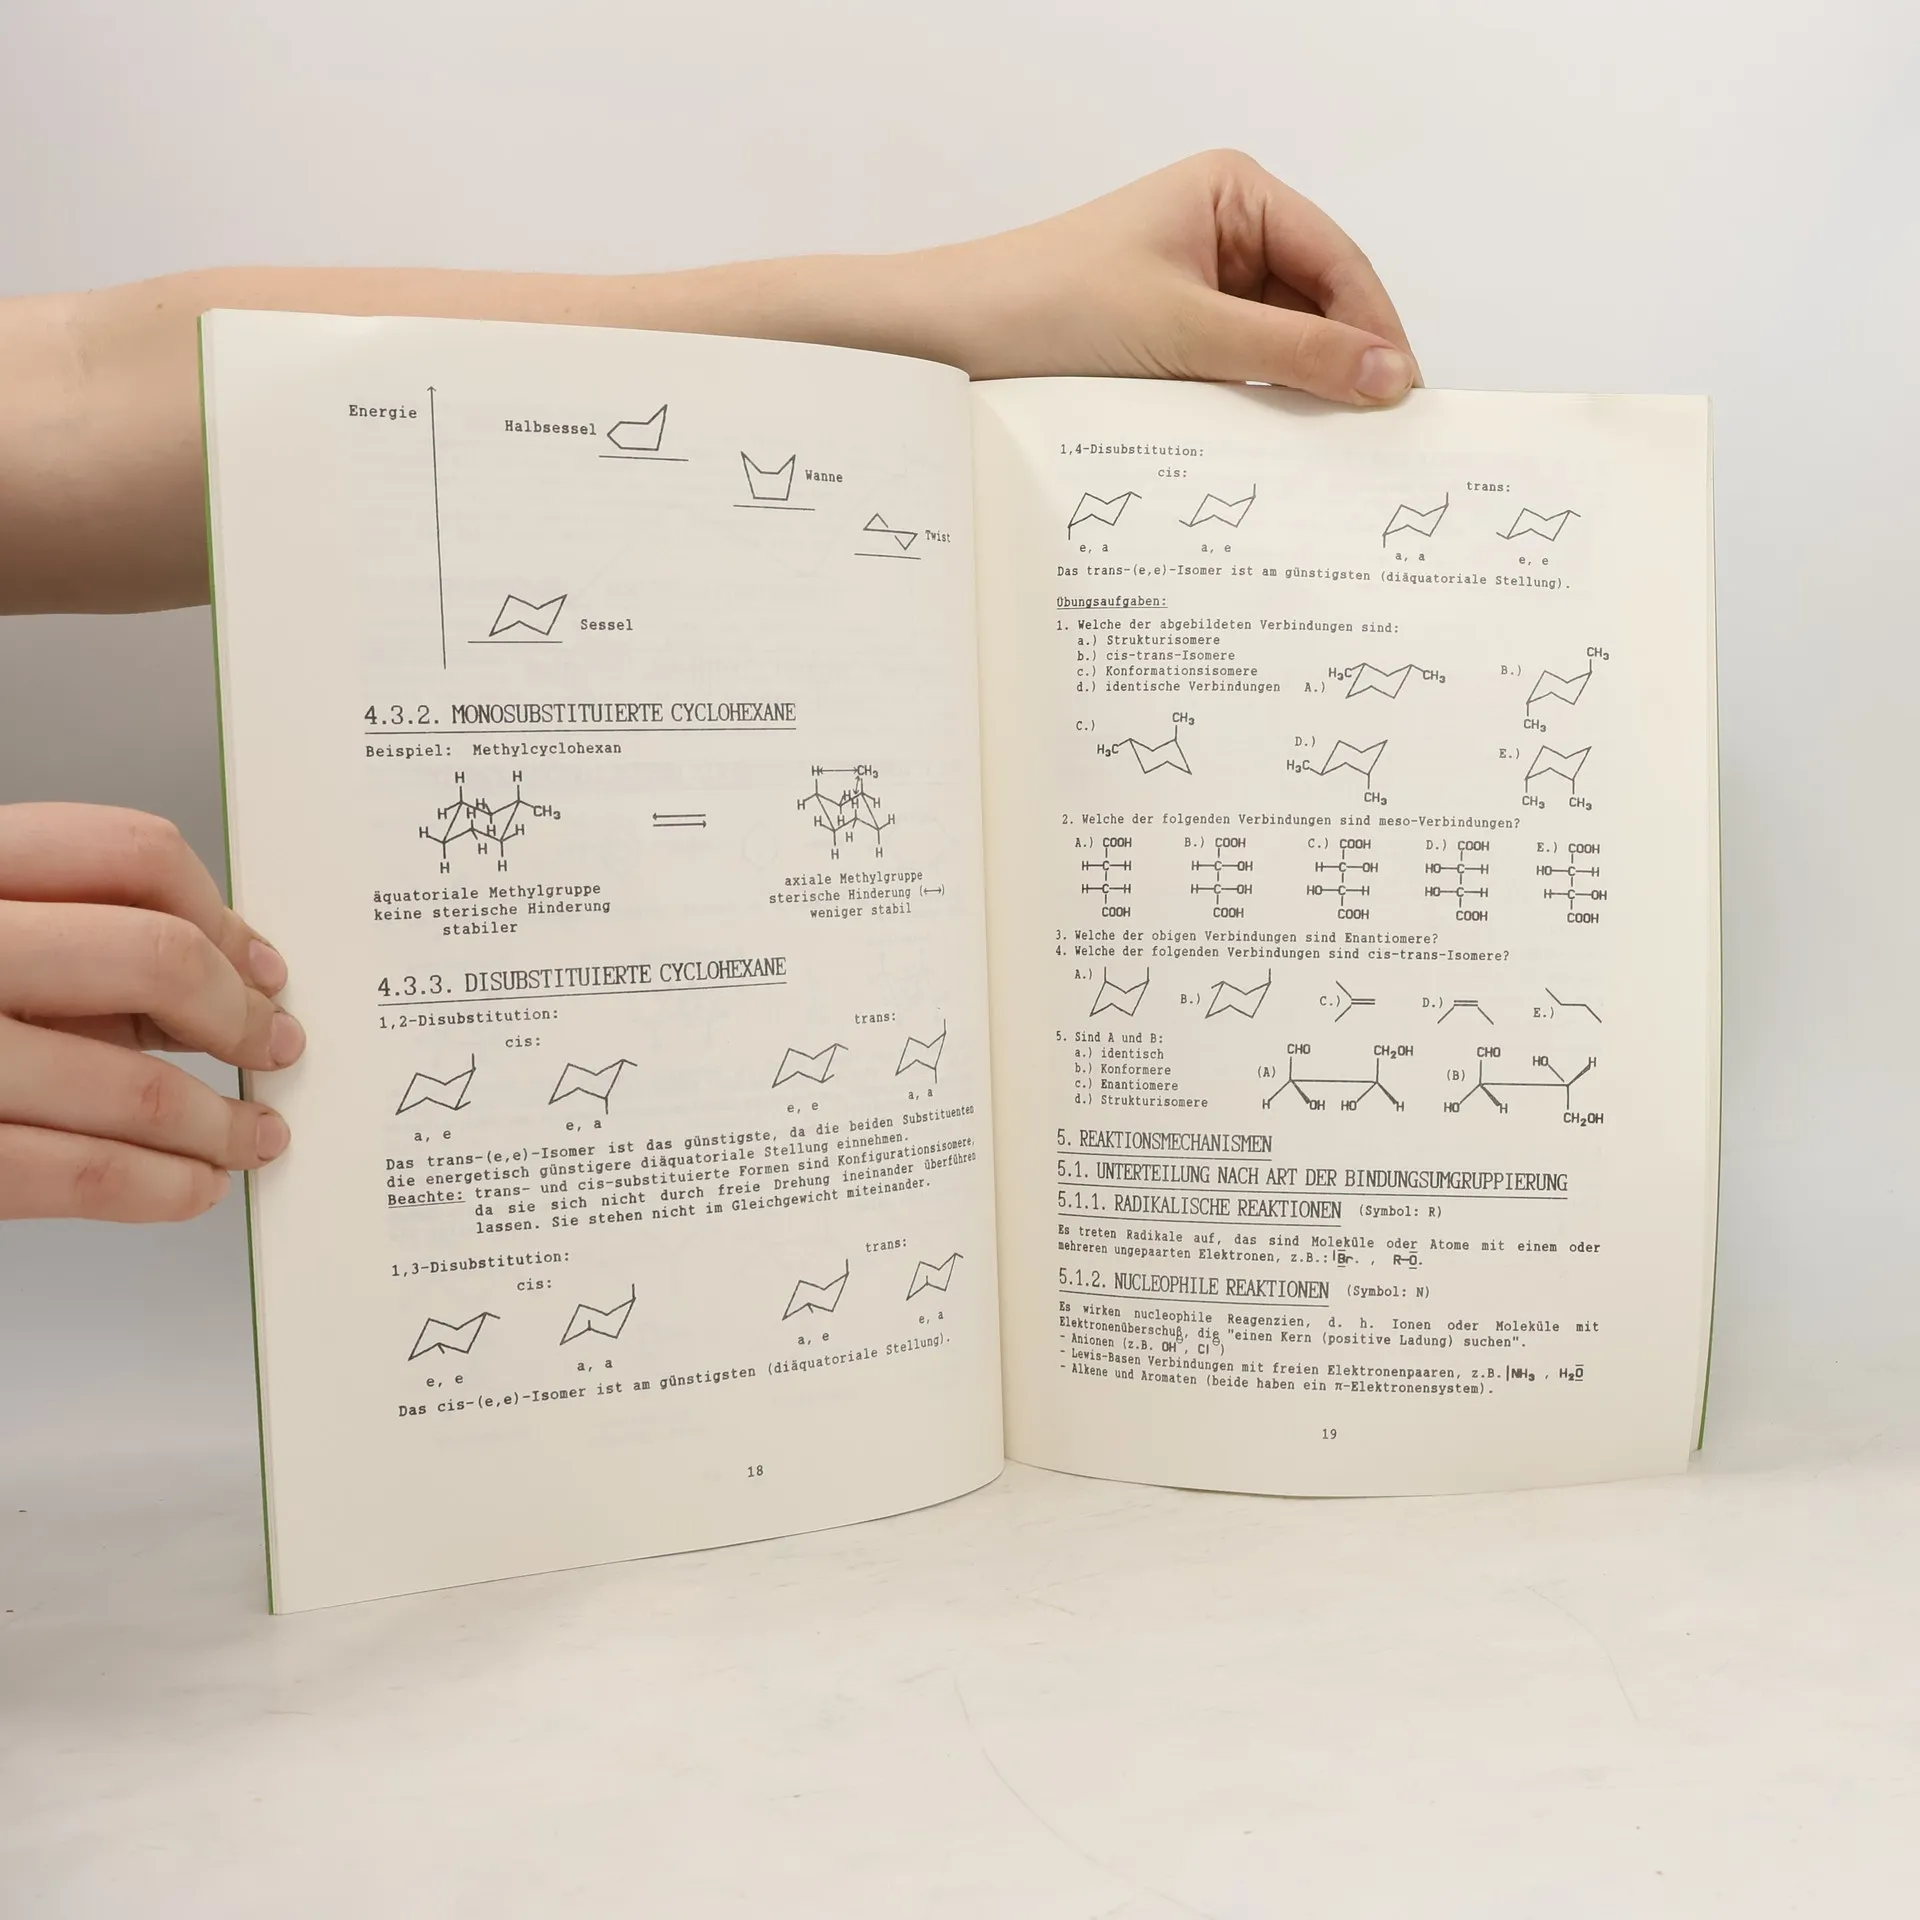 Energie
Halbsessel
Wanne
Twist
Sessel
4.3.2. MONOSUBSTITUIERTE CYCLOHEXANE
Beispiel: Methylcyclohexan
H H
H H H CH₃
H H H
H
H H
H CH₃
H H H H
H H H
H H
äquatoriale Methylgruppe
keine sterische Hinderung
stabiler
axiale Methylgruppe
sterische Hinderung (⟷)
weniger stabil
4.3.3. DISUBSTITUIERTE CYCLOHEXANE
1,2-Disubstitution:
cis:
trans:
a, e
e, a
e, e
a, a
Das trans-(e,e)-Isomer ist das günstigste, da die beiden Substituenten
die energetisch günstigere diäquatoriale Stellung einnehmen.
Beachte: trans- und cis-substituierte Formen sind Konfigurationsisomere,
da sie sich nicht durch freie Drehung ineinander überführen
lassen. Sie stehen nicht im Gleichgewicht miteinander.
1,3-Disubstitution:
cis:
trans:
e, e
a, a
a, e
e, a
Das cis-(e,e)-Isomer ist am günstigsten (diäquatoriale Stellung).
18
1,4-Disubstitution:
cis:
trans:
e, a
a, e
a, a
e, e
Das trans-(e,e)-Isomer ist am günstigsten (diäquatoriale Stellung).
Übungsaufgaben:
1. Welche der abgebildeten Verbindungen sind:
a.) Strukturisomere
b.) cis-trans-Isomere
c.) Konformationsisomere
d.) identische Verbindungen
A.) H₃C CH₃
B.) CH₃
CH₃
C.) CH₃
H₃C
D.)
H₃C
CH₃
E.)
CH₃ CH₃
2. Welche der folgenden Verbindungen sind meso-Verbindungen?
A.) COOH B.) COOH C.) COOH D.) COOH E.) COOH
H—C—H H—C—OH H—C—OH HO—C—H HO—C—H
H—C—H H—C—OH HO—C—H HO—C—H H—C—OH
COOH COOH COOH COOH COOH
3. Welche der obigen Verbindungen sind Enantiomere?
4. Welche der folgenden Verbindungen sind cis-trans-Isomere?
A.) B.) C.) D.) E.)
5. Sind A und B:
a.) identisch
b.) Konformere
c.) Enantiomere
d.) Strukturisomere
(A) CHO CH₂OH
H OH HO H
(B) CHO HO H
HO H CH₂OH
5. REAKTIONSMECHANISMEN
5.1. UNTERTEILUNG NACH ART DER BINDUNGSUMGRUPPIERUNG
5.1.1. RADIKALISCHE REAKTIONEN (Symbol: R)
Es treten Radikale auf, das sind Moleküle oder Atome mit einem oder
mehreren ungepaarten Elektronen, z.B.: |B̅r̲. , R—O̲̅.
5.1.2. NUCLEOPHILE REAKTIONEN (Symbol: N)
Es wirken nucleophile Reagenzien, d. h. Ionen oder Moleküle mit
Elektronenüberschuß, die "einen Kern (positive Ladung) suchen".
- Anionen (z.B. OH⊖, Cl⊖)
- Lewis-Basen Verbindungen mit freien Elektronenpaaren, z.B. |NH₃ , H₂O̲̅
- Alkene und Aromaten (beide haben ein π-Elektronensystem).
19